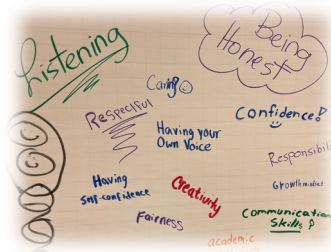 Listening
Being
Honest
Caring
Respectful
Confidence!
Having your
Own Voice
Responsibil
Having
Self-confidence
Creativity
Growth mindset
Fairness
Communication
Skills
academic